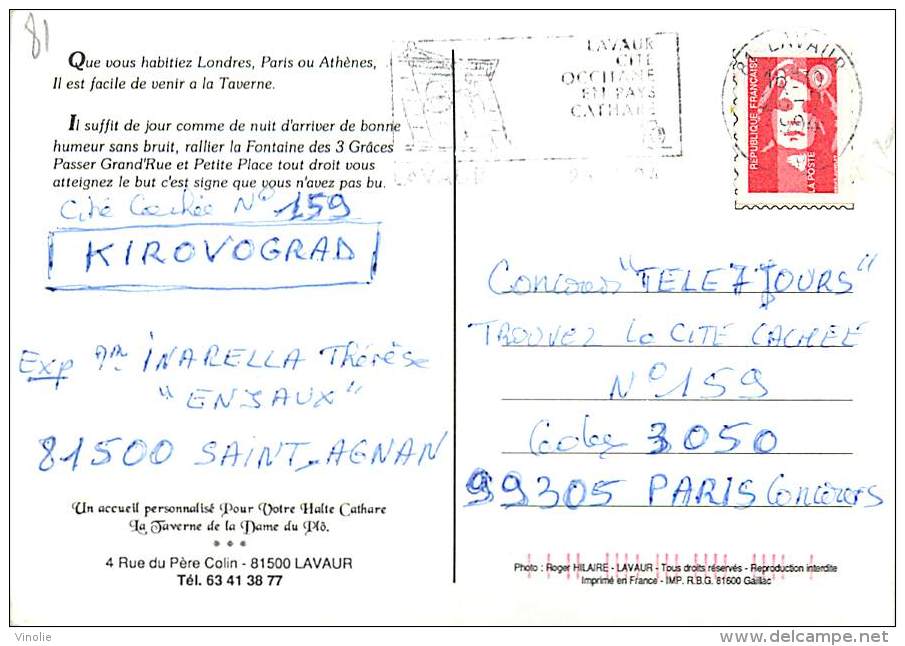 81
Que vous habitiez Londres, Paris ou Athènes,
Il est facile de venir a la Taverne.
Il suffit de jour comme de nuit d'arriver de bonne
humeur sans bruit, rallier la Fontaine des 3 Grâces
Passer Grand'Rue et Petite Place tout droit vous
atteignez le but c'est signe que vous n'avez pas bu.
Cité Cachée N° 159
KIROVOGRAD
Exp INARELLA Thérèse
"ENJAUX"
81500 SAINT-AGNAN
Un accueil personnalisé Pour Votre Halte Cathare
La Taverne de la Dame du Plô.
* * *
4 Rue du Père Colin - 81500 LAVAUR
Tél. 63 41 38 77
LAVAUR
CITÉ
OCCITANE
EN PAYS
CATHARE
81 LAVAUR
REPUBLIQUE FRANÇAISE
LA POSTE
Concours "TELE 7 JOURS"
TROUVEZ la CITE CACHEE
N° 159
Cedex 3050
99305 PARIS Concours
Photo : Roger HILAIRE - LAVAUR - Tous droits réservés - Reproduction interdite
Imprimé en France - IMP. R.B.G. 81600 Gaillac
Vinolie
www.delcampe.net